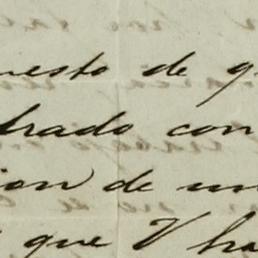 uesto de q
trado con
ion de un
que V ha